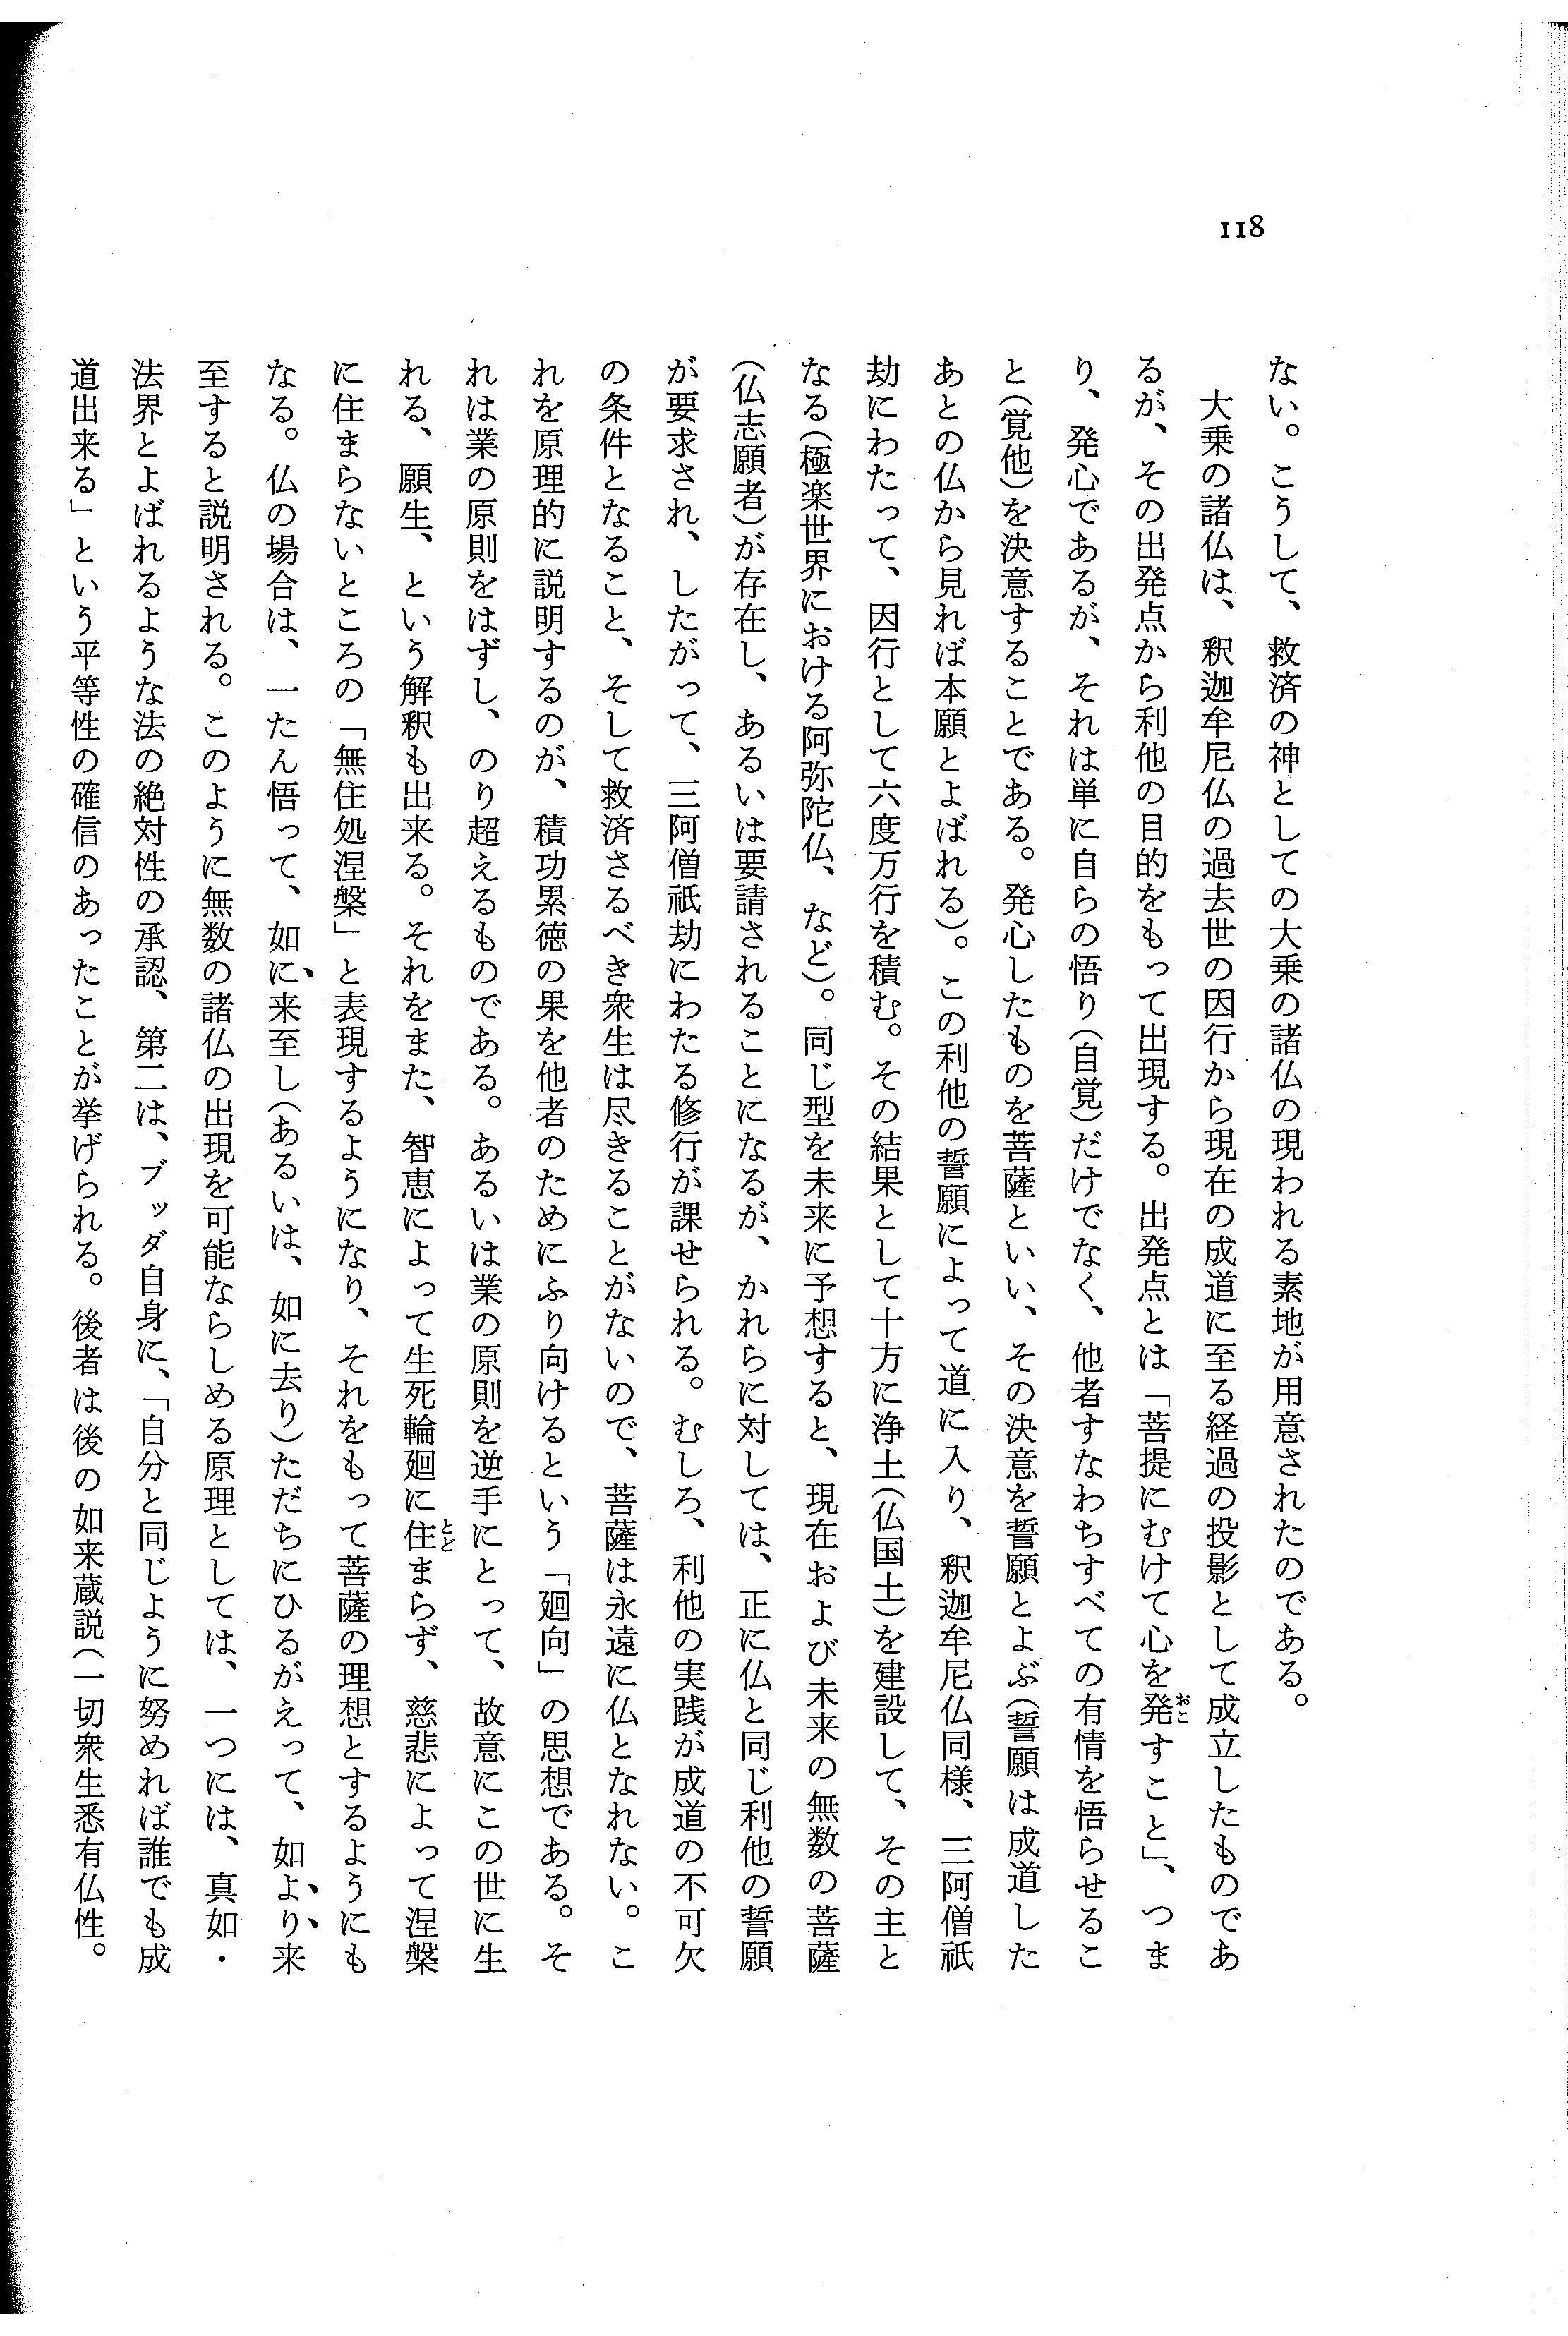 118
ない。こうして、救済の神としての大乗の諸仏の現われる素地が用意されたのである。
　大乗の諸仏は、釈迦牟尼仏の過去世の因行から現在の成道に至る経過の投影として成立したものであ
るが、その出発点から利他の目的をもって出現する。出発点とは「菩提にむけて心を発すこと」、つま
り、発心であるが、それは単に自らの悟り(自覚)だけでなく、他者すなわちすべての有情を悟らせるこ
と(覚他)を決意することである。発心したものを菩薩といい、その決意を誓願とよぶ(誓願は成道した
あとの仏から見れば本願とよばれる)。この利他の誓願によって道に入り、釈迦牟尼仏同様、三阿僧祇
劫にわたって、因行として六度万行を積む。その結果として十方に浄土(仏国土)を建設して、その主と
なる(極楽世界における阿弥陀仏、など)。同じ型を未来に予想すると、現在および未来の無数の菩薩
(仏志願者)が存在し、あるいは要請されることになるが、かれらに対しては、正に仏と同じ利他の誓願
が要求され、したがって、三阿僧祇劫にわたる修行が課せられる。むしろ、利他の実践が成道の不可欠
の条件となること、そして救済さるべき衆生は尽きることがないので、菩薩は永遠に仏となれない。こ
れを原理的に説明するのが、積功累徳の果を他者のためにふり向けるという「廻向」の思想である。そ
れは業の原則をはずし、のり超えるものである。あるいは業の原則を逆手にとって、故意にこの世に生
れる、願生、という解釈も出来る。それをまた、智恵によって生死輪廻に住まらず、慈悲によって涅槃
に住まらないところの「無住処涅槃」と表現するようになり、それをもって菩薩の理想とするようにも
なる。仏の場合は、一たん悟って、如に来至し(あるいは、如に去り)ただちにひるがえって、如より来
至すると説明される。このように無数の諸仏の出現を可能ならしめる原理としては、一つには、真如・
法界とよばれるような法の絶対性の承認、第二は、ブッダ自身に、「自分と同じように努めれば誰でも成
道出来る」という平等性の確信のあったことが挙げられる。後者は後の如来蔵説(一切衆生悉有仏性。
おこ
とど